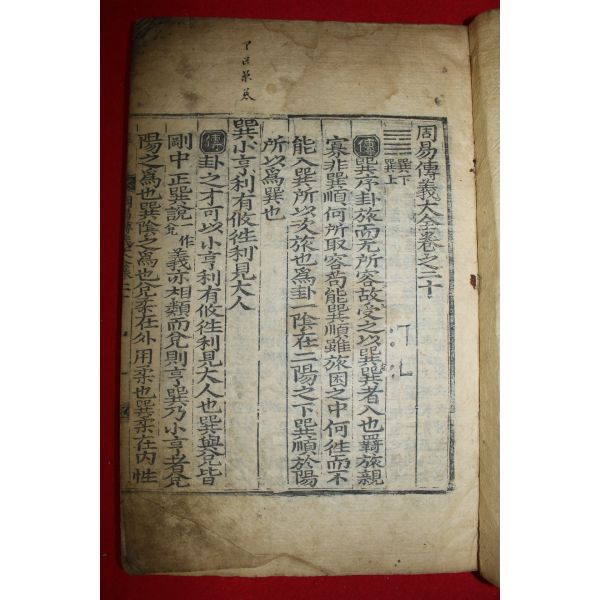 周易傳義大全卷之二十
巽下
巽上
傳巽序卦旅而无所容故受之以巽巽者入也羇旅親
寡非巽順何所取容苟能巽順雖旅困之中何徃而不
能入巽所以次旅也爲卦一陰在二陽之下巽順於陽
所以爲巽也
巽小亨利有攸徃利見大人
傳卦之才可以小亨利有攸徃利見大人也巽與兊皆
剛中正巽說一作兊義亦相類而兊則亨巽乃小亨者兊
陽之爲也巽陰之爲也兊柔在外用柔也巽柔在內性